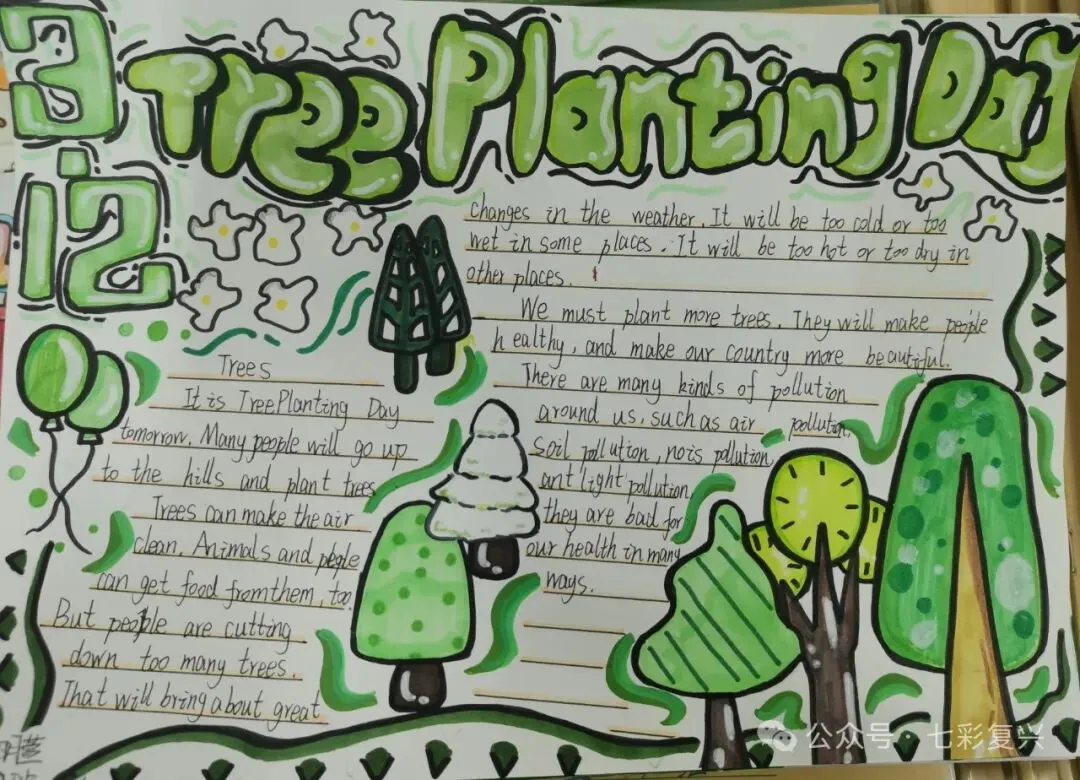 3
12
Tree Planting Day
Trees
It is Tree Planting Day
tomorrow. Many people will go up
to the hills and plant trees
Trees can make the air
clean. Animals and people
can get food from them, too.
But people are cutting
down too many trees.
That will bring about great
changes in the weather. It will be too cold or too
wet in some places. It will be too hot or too dry in
other places.
We must plant more trees. They will make people
healthy, and make our country more beautiful.
There are many kinds of pollution
around us, such as air pollution,
soil pollution, nois pollution,
ant light pollution,
they are bad for
our health in many
ways.
公众号·七彩复兴